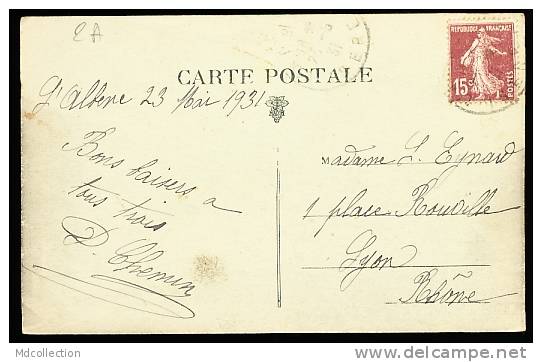 2 A
CARTE POSTALE
REPUBLIQUE FRANÇAISE
15c
POSTES
23 Mai 1931
Bons baisers a
tous trois
D. Themin
Madame L. Eynard
1 place Rouville
Lyon
Rhône
Mdcollection
www.delcampe.net